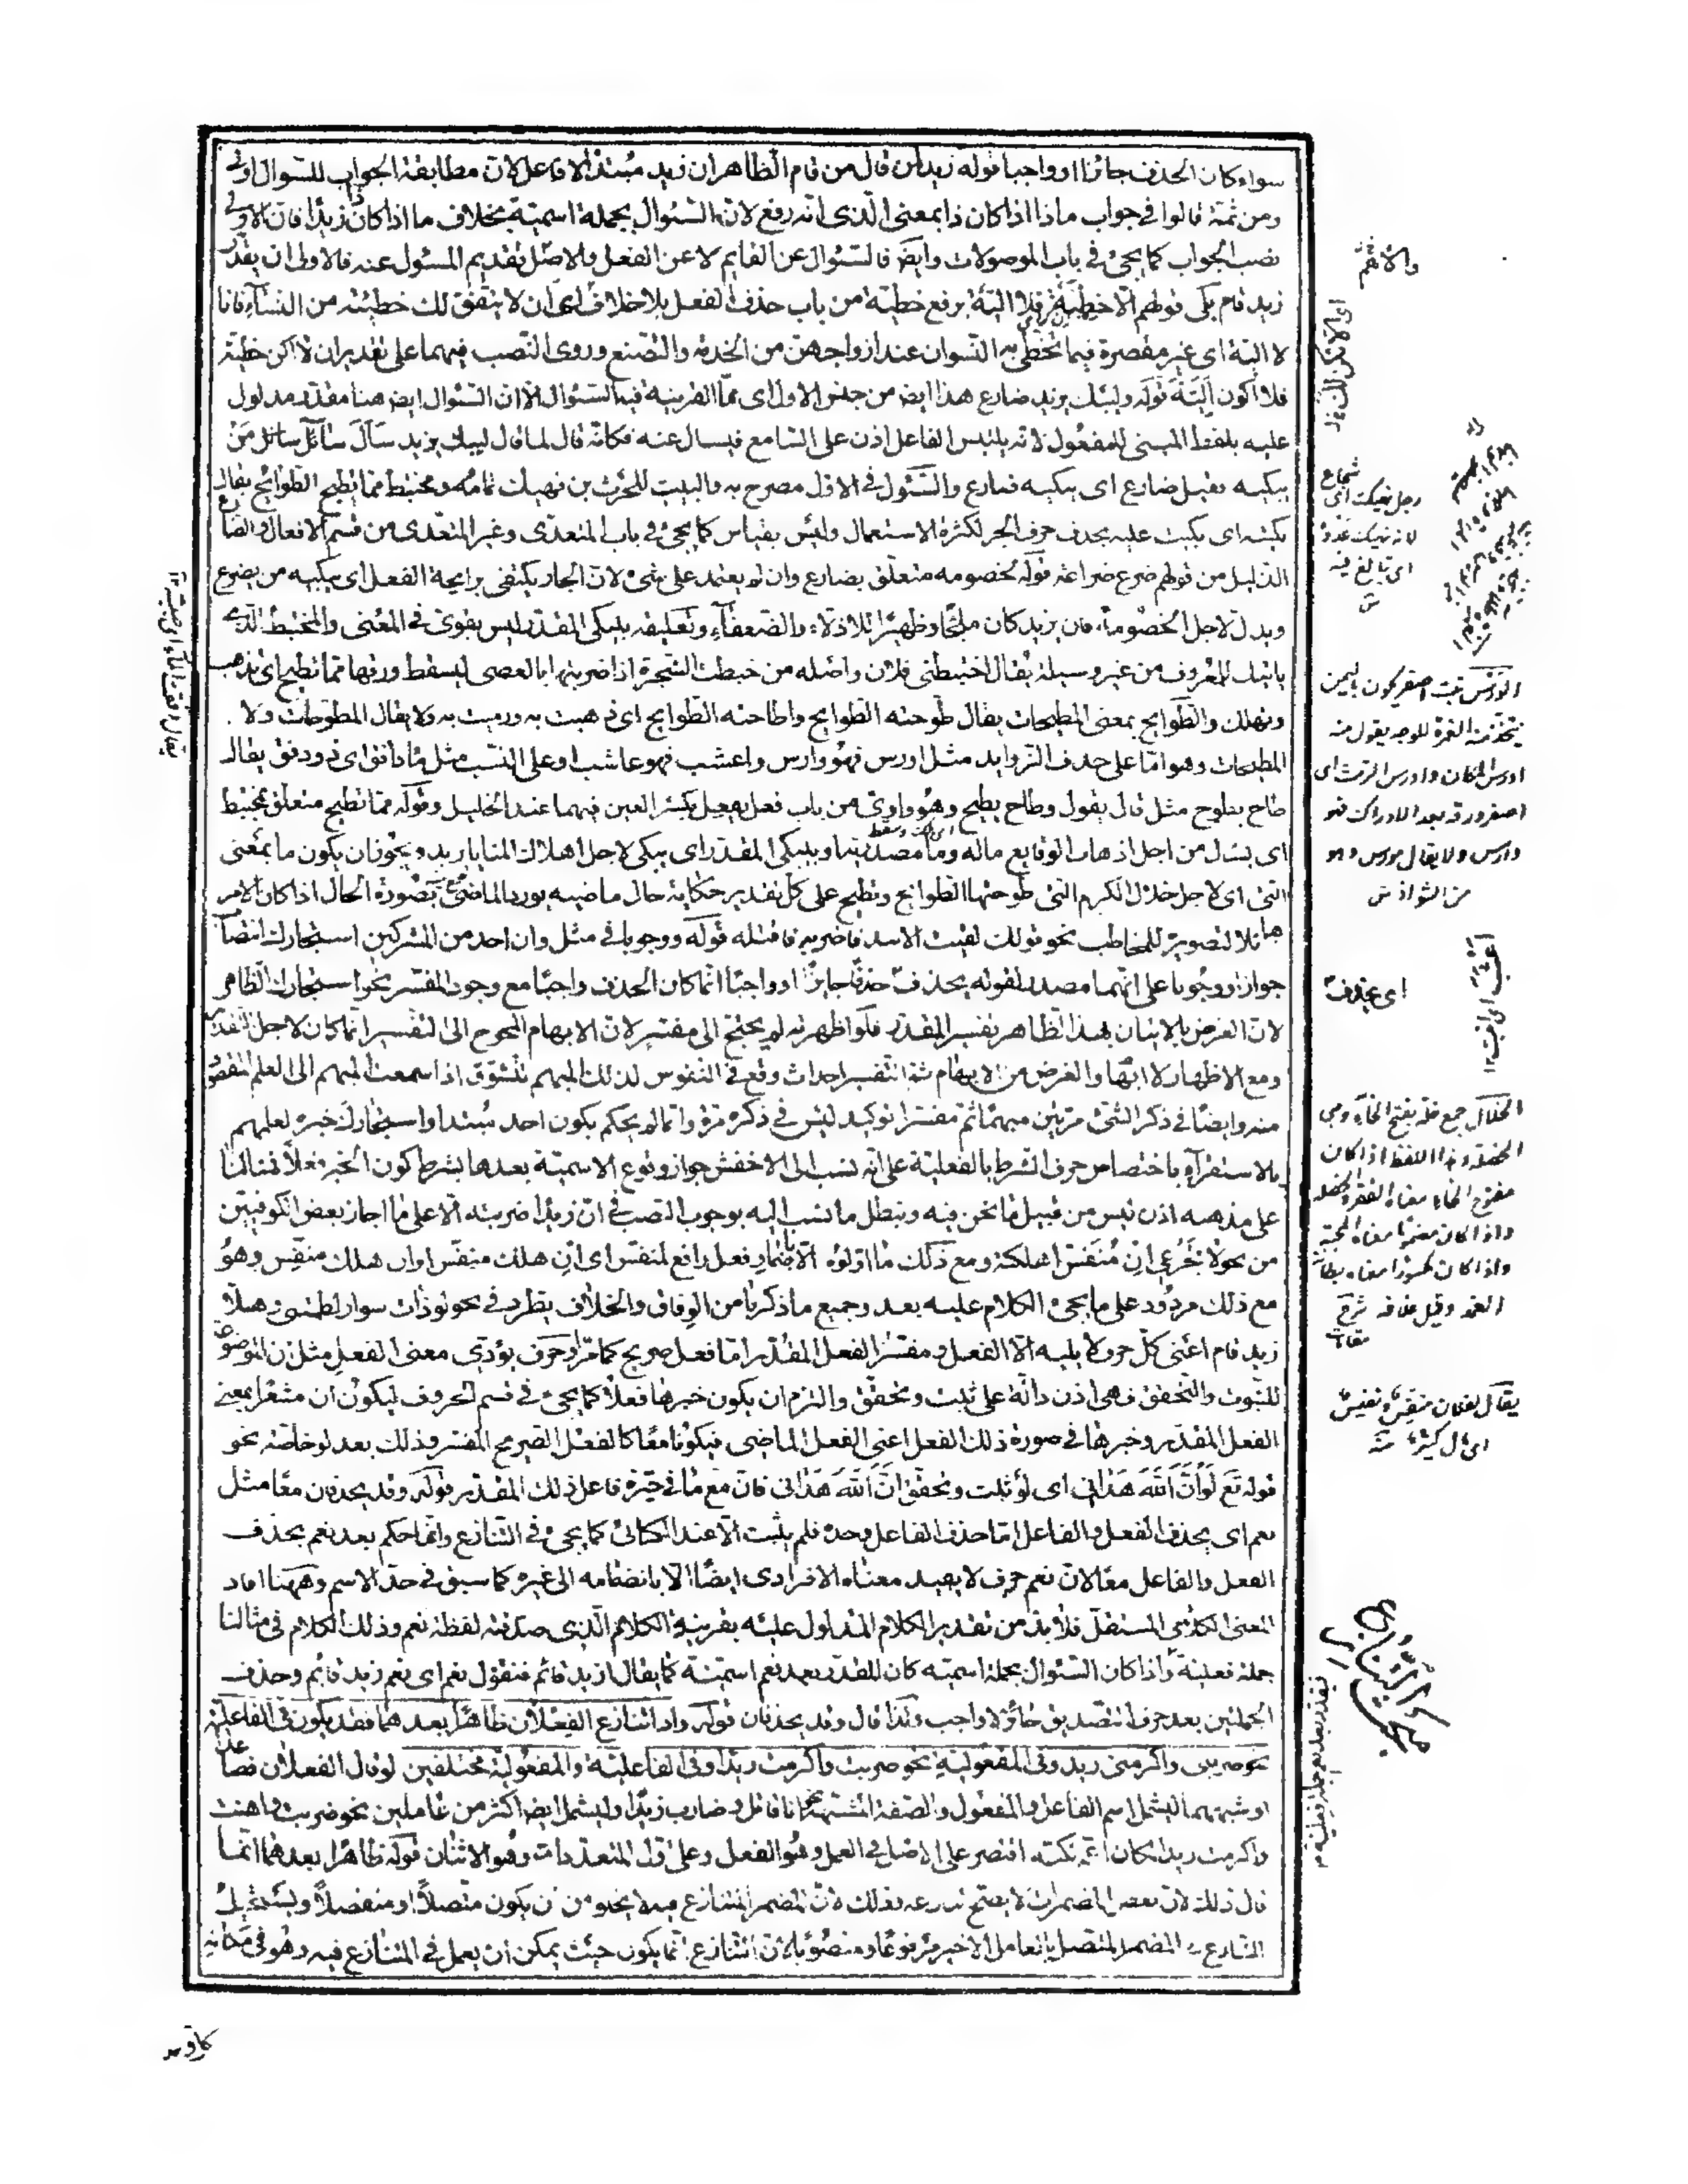 سواء كان الحذف جائزا او واجبا قوله زيد لمن قال من قام الظاهر ان زيد مبتدأ لا فاعل لان مطابقة الجواب للسؤال اولى
ومن ثمة قالوا في جواب ماذا اذا كان ذا بمعنى الذى انه رفع لان السئوال بجملة اسمية بخلاف ما اذا كان ذا زيدا فان الاولى
نصب الجواب كما يجئ في باب الموصولات وايض فالسئوال عن القايم لا عن الفعل والاصل تقديم المسئول عنه فالاولى ان يقدر
زيد قام بلى قولهم الا خطية فلا الية برفع خطية من باب حذف الفعل بلا خلاف اى ان لا يتفق لك خطية من النساء فانا
لا الية اى غير مقصرة فيما تخطى به النسوان عند ازواجهن من الخدمة والتصنع وروى النصب فيهما على تقدير ان لا اكن خطية
فلا اكون الية قوله وليبك يزيد ضارع هذا ايض من جنس الاول اى مما القرينة فيه السئوال الا ان السئوال ايض هنا مقدر مدلول
عليه بلفظ المبنى للمفعول لانه يلتبس الفاعل اذن على السامع فيسال عنه فكانه قال لما قال ليبك يزيد سأل سائل من
يبكيه فقيل ضارع اى يبكيه ضارع والسئول في الاول مصرح به والبيت للحرث بن نهيك تمامه ومختبط مما تطيح الطوائح يقال
بكيته اى بكيت عليه بحذف حرف الجر لكثرة الاستعمال وليس بقياس كما يجئ في باب المتعدى وغير المتعدى من قسم الافعال والضارع
الذليل من قولهم ضرع ضراعة قوله لخصومة متعلق بضارع وان لم يعتمد على شئ لان الجار يكتفى برايحة الفعل اى يبكيه من يضرع
ويذل لاجل الخصومة فان يزيد كان ملجأ وظهيرا للاذلاء والضعفاء وتعليقه بيبكى المقدر ليس بقوى في المعنى والمختبط الذى
ياتيك للمعروف من غير وسيلة يقال اختبطنى فلان واصله من خبطت الشجرة اذا ضربتها بالعصى ليسقط ورقها مما تطيح اى تذهب
وتهلك والطوايح بمعنى المطيحات يقال طوحته الطوايح واطاحته الطوايح اى ذهبت به ورميت به ولا يقال المطوحات ولا
المطيحات وهو اما على حذف الزوايد مثل اورس فهو وارس واعشب فهو عاشب او على النسب مثل ماء دافق اى ذو دفق يقال
طاح يطوح مثل قال يقول وطاح يطيح وهو واوى من باب فعل يفعل بكسر العين فيهما عند الخليل وقوله مما تطيح متعلق بمختبط
اى يسئل من اجل اذهاب الوقايع ماله وما مصدرية او بيبكى المقدر اى يبكى لاجل اهلاك المنايا يزيد ويجوز ان يكون ما بمعنى
التى اى لاجل خلال الكرم التى طوحتها الطوايح وتطيح على كل تقدير حكاية حال ماضيه يورد الماضى بصورة الحال اذا كان الامر
هايلا لتصويره للمخاطب نحو قولك لقيت الاسد فاضربه فاقتله قوله ووجوبا في مثل وان احد من المشركين استجارك انتصاب
جوازا ووجوبا على انهما مصدر لقوله يحذف حذفا جايزا او واجبا انما كان الحذف واجبا مع وجود المفسر نحو استجارك الظاهر
لان الغرض بالاتيان بهذا الظاهر تفسير المقدر فلو اظهرته لم يحتج الى مفسر لان الابهام المحوج الى التفسير انما كان لاجل التقدير
ومع الاظهار لا ابهام والغرض من الابهام ثم التفسير احداث وقع في النفوس لذلك المبهم لتشوق اذا سمعت المبهم الى العلم المقصود
منه وايضا في ذكر الشئ مرتين مبهما ثم مفسرا توكيد ليس في ذكره مرة وانما لم يحكم بكون احد مبتدأ واستجارك خبره لعلمهم
بالاستقراء باختصاص حرف الشرط بالفعلية على انه نسب الى الاخفش جواز وقوع الاسمية بعدها بشرط كون الخبر فعلا فمثالنا
على مذهبه اذن ليس من قبيل ما نحن فيه ويبطل ما نسب اليه بوجوب النصب في ان زيدا ضربته الا على ما اجاز بعض الكوفيين
من نحو لا تجزعى ان منفس اهلكته ومع ذلك ما اولوه الا باضمار فعل رافع لمنفس اى ان هلك منفس او ان هلك منفس وهو
مع ذلك مردود على ما يجئ الكلام عليه بعد وجميع ما ذكرنا من الوفاق والخلاف يطرد في نحو لو ذات سوار لطمتنى وهلا
زيد قام اعنى كل حرف لا يليه الا الفعل ومفسر الفعل المقدر اما فعل صريح كما مر او حرف يؤدى معنى الفعل مثل ان الموضوعة
للثبوت والتحقق فهى اذن دالة على ثبت وتحقق والتزم ان يكون خبرها فعلا كما يجئ في قسم الحروف ليكون ان مشعرا بمعنى
الفعل المقدر وخبرها في صورة ذلك الفعل اعنى الفعل الماضى فيكونا معا كالفعل الصريح المفسر وذلك بعد لو خاصة نحو
قوله تع لو ان الله هدانى اى لو ثبت وتحقق ان الله هدانى فان مع ما في حيزه فاعل ذلك المقدر قوله وقد يحذفان معا مثل
نعم اى يحذف الفعل والفاعل اما حذف الفاعل وحده فلم يثبت الا عند الكسائى كما يجئ في التنازع وانما حكم بعد نعم بحذف
الفعل والفاعل معا لان نعم حرف لا يفيد معناه الافرادى ايضا الا بانضمامه الى غيره كما سبق في حد الاسم وههنا افاد
المعنى الكلامى المستقل فلا بد من تقدير الكلام المدلول عليه بقرينة الكلام الذى صدقته لفظة نعم وذلك الكلام في مثالنا
جملة فعلية واذا كان السئوال بجملة اسمية كان المقدر بعد نعم اسمية كما يقال ازيد قائم فنقول نعم اى نعم زيد قايم وحذف
الجملتين بعد حرف التصديق جائز لا واجب ولذا قال وقد يحذفان قوله واذا تنازع الفعلان ظاهرا بعدهما فقد يكون في الفاعلية
نحو ضربنى واكرمنى زيد وفي المفعولية نحو ضربت واكرمت زيدا وفي الفاعلية والمفعولية مختلفين لو قال الفعلان فصاعدا
او شبههما ليشمل اسم الفاعل والمفعول والصفة المشبهة نحو انا قاتل وضارب زيدا وليشمل ايض اكثر من عاملين نحو ضربت واهنت
واكرمت زيدا لكان اعم لكنه اقتصر على الاصل في العمل وهو الفعل وعلى اول المتعددات وهو الاثنان قوله ظاهرا بعدهما انما
قال ذلك لان بعض المضمرات لا يصح تنازعه وذلك لان المضمر المتنازع فيه لا يخلو من ان يكون متصلا او منفصلا ويستحيل
التنازع في المضمر المتصل بالعامل الاخير مرفوعا او منصوبا لان التنازع انما يكون حيث يمكن ان يعمل في المتنازع فيه وهو في مكانه
شجاع
رجل نهيك اى
اى تبالغ فيه
الورس نبت اصفر يكون باليمن
يتخذ منه الغمرة للوجه يقول منه
اورس المكان واورس الرمث اى
اصفر ورقه بعد الادراك فهو
وارس ولا يقال مورس وهو
من الشواذ
اى يحذف
الخلال جمع خلة بفتح الخاء وهى
الخصلة وهذا اللفظ اذا كان
مفتوح الخاء معناه الفقر والخصلة
واذا كان مضموما معناه المحبة
واذا كان مكسورا معناه بطانة
الغمد وقيل غلافه
يقال لفلان منفس ونفيس
اى مال كثير
مبحث التنازع